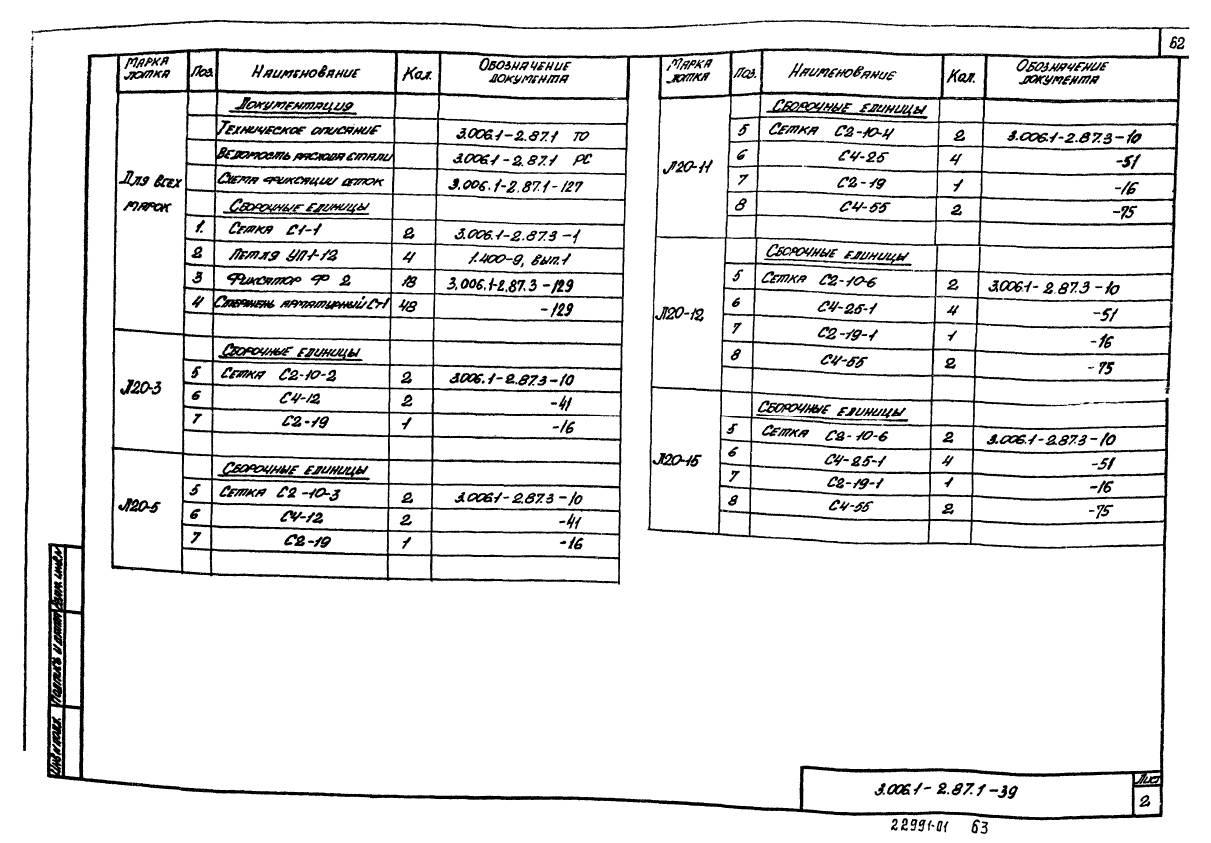 62
Марка лотка Поз. Наименование Кол. Обозначение документа
Для всех марок
Документация
Техническое описание 3.006.1-2.87.1 ТО
Ведомость расхода стали 3.006.1-2.87.1 РС
Схема фиксации сеток 3.006.1-2.87.1-127
Сборочные единицы
1. Сетка С1-1 2 3.006.1-2.87.3-1
2 Петля УП1-12 4 1.400-9, вып.1
3 Фиксатор Ф 2 18 3.006.1-2.87.3-129
4 Стержень арматурный Ст1 48 -129
Л20-3
Сборочные единицы
5 Сетка С2-10-2 2 3.006.1-2.87.3-10
6 С4-12 2 -41
7 С2-19 1 -16
Л20-5
Сборочные единицы
5 Сетка С2-10-3 2 3.006.1-2.87.3-10
6 С4-12 2 -41
7 С2-19 1 -16
Марка лотка Поз. Наименование Кол. Обозначение документа
Л20-11
Сборочные единицы
5 Сетка С2-10-4 2 3.006.1-2.87.3-10
6 С4-25 4 -51
7 С2-19 1 -16
8 С4-55 2 -75
Л20-12
Сборочные единицы
5 Сетка С2-10-6 2 3.006.1-2.87.3-10
6 С4-25-1 4 -51
7 С2-19-1 1 -16
8 С4-55 2 -75
Л20-15
Сборочные единицы
5 Сетка С2-10-6 2 3.006.1-2.87.3-10
6 С4-25-1 4 -51
7 С2-19-1 1 -16
8 С4-55 2 -75
Инв.№ подл. Подпись и дата Взам. инв.№
3.006.1-2.87.1-39
Лист
2
22991-01 63